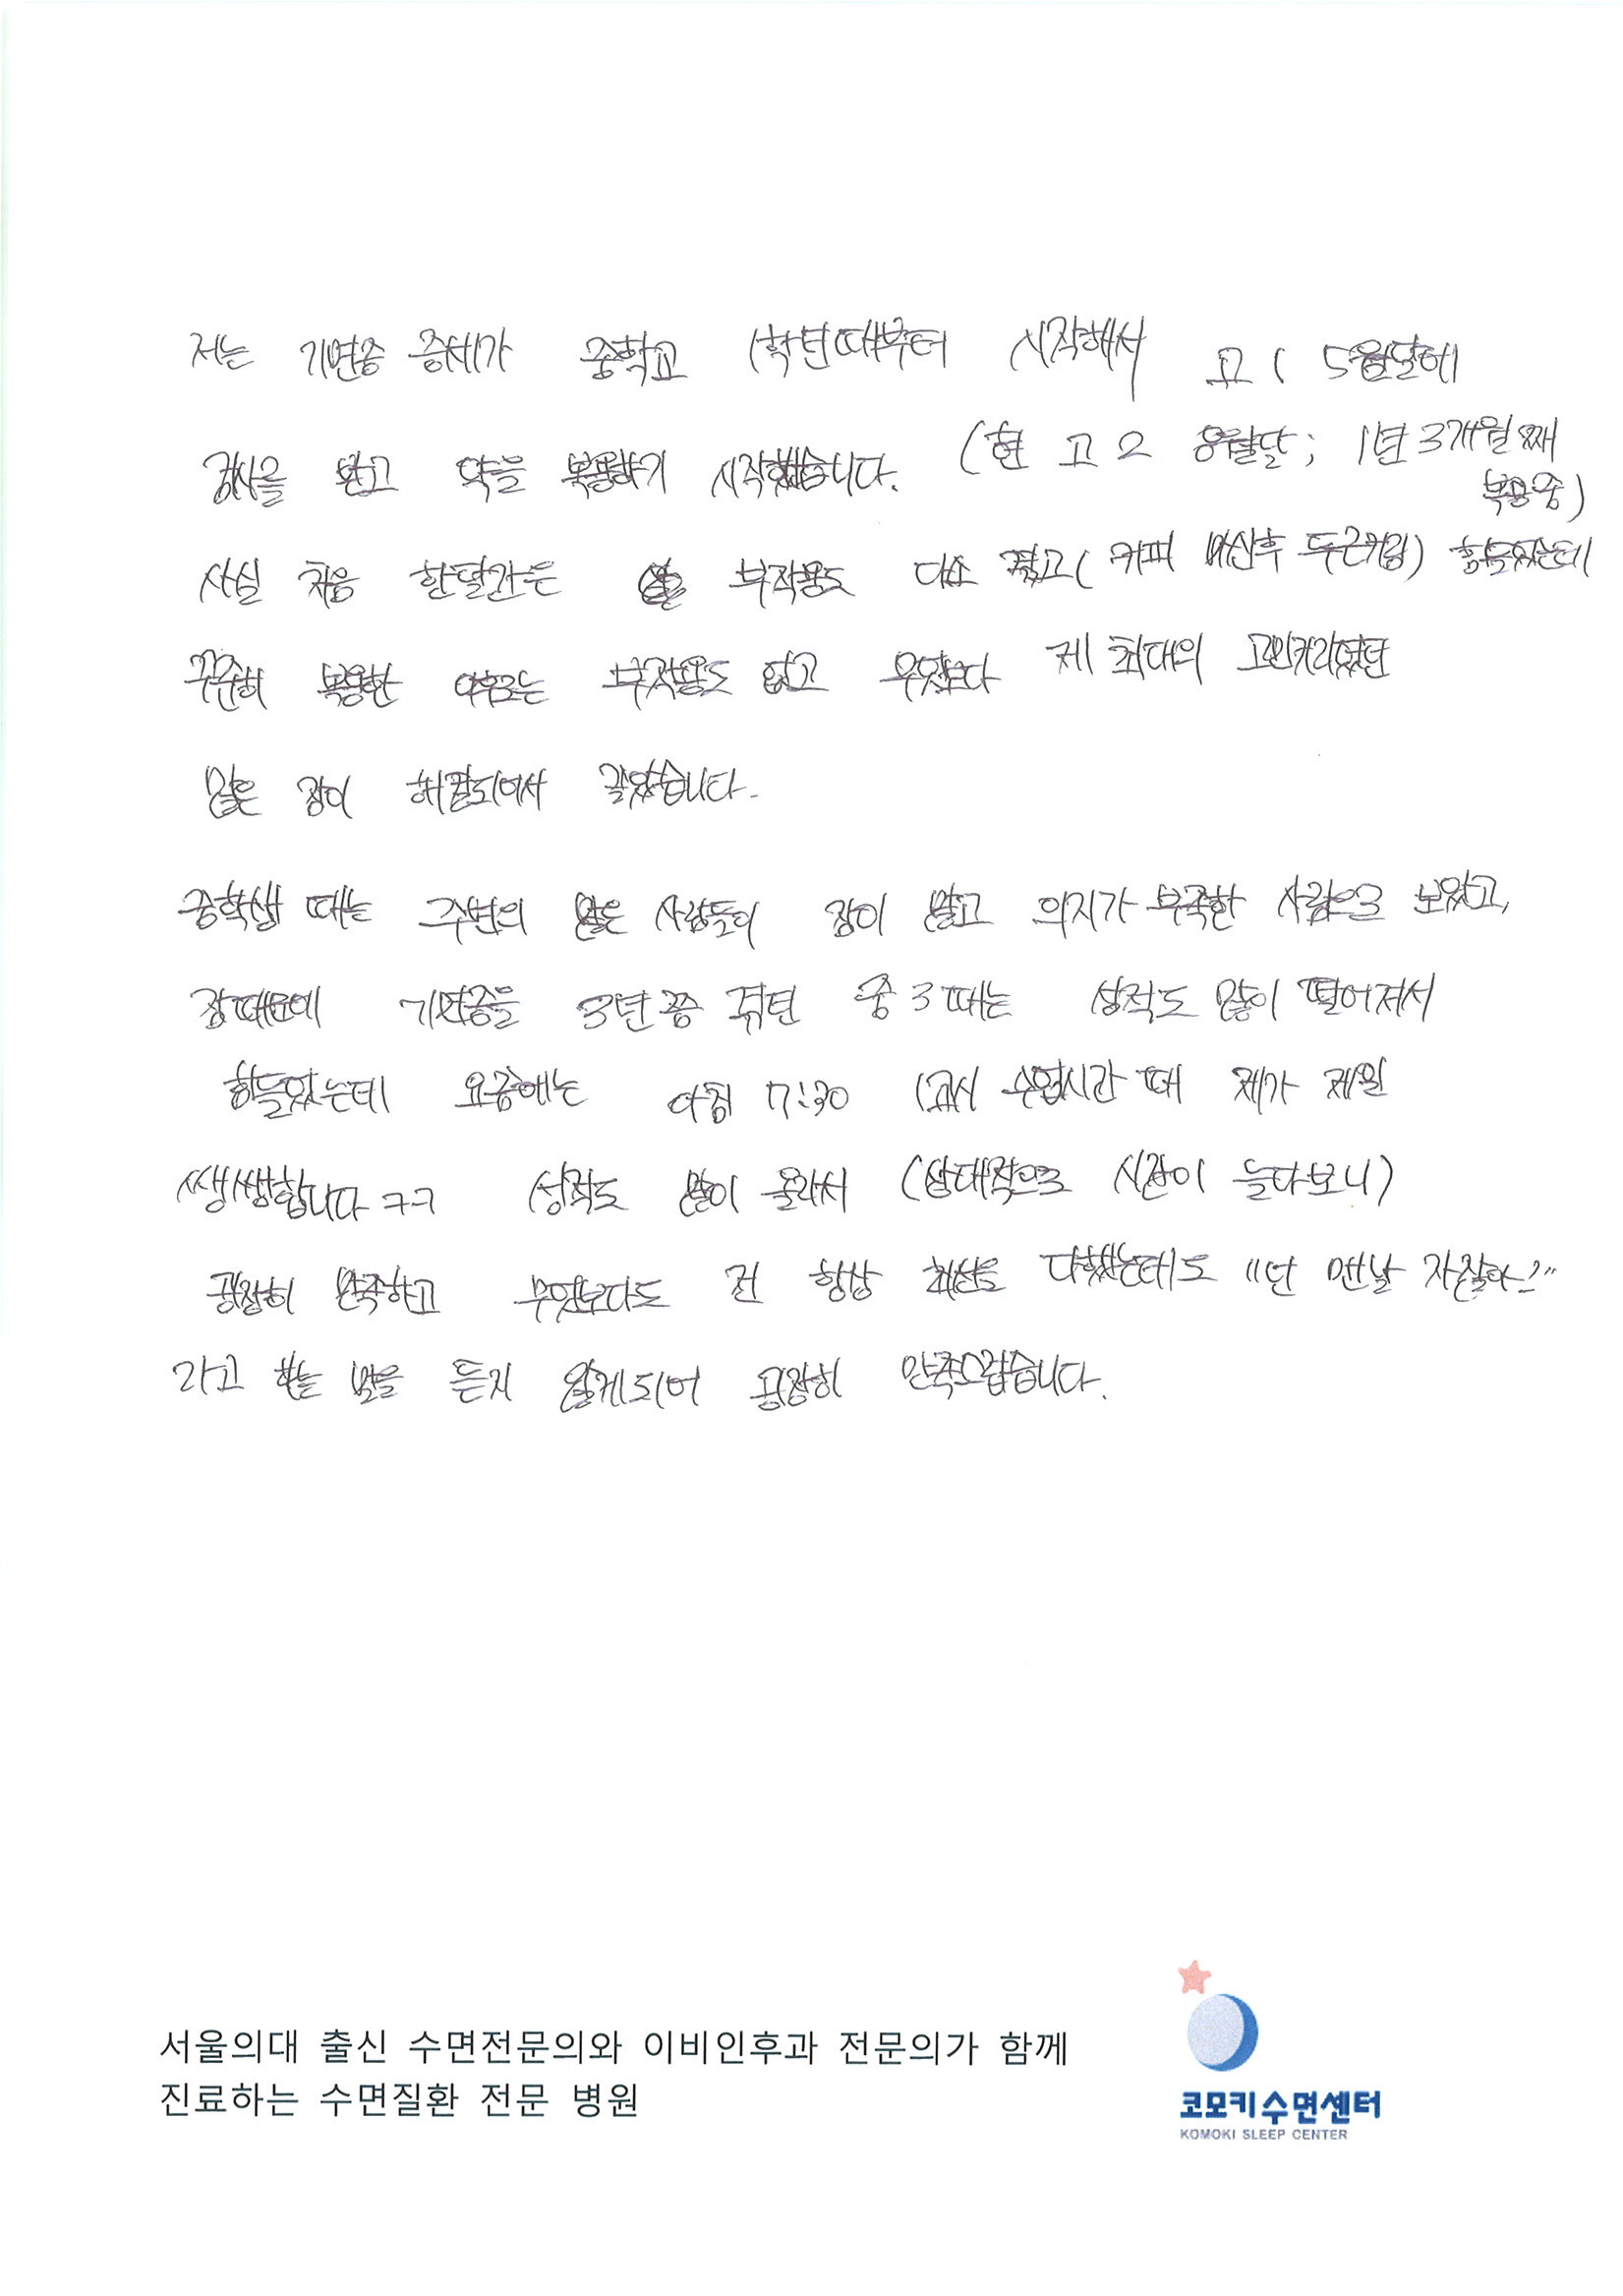 저는 기면증 증세가 중학교 1학년때부터 시작해서 고1 5월달에
검사를 받고 약을 복용하기 시작했습니다. (현 고2 8월달; 1년 3개월째
복용중)
사실 처음 한달간은 부작용도 다소 겪고(커피 마신후 두근거림) 힘들었는데
꾸준히 복용한 이후로는 부작용도 없고 무엇보다 제 최대의 고민거리였던
많은 잠이 해결되어서 좋았습니다.
중학생 때는 주변의 많은 사람들이 잠이 많고 의지가 부족한 사람으로 보았고,
잠때문에 기면증을 3년쯤 겪던 중3때는 성적도 많이 떨어져서
힘들었는데 요즘에는 아침 7:30 1교시 수업시간 때 제가 제일
쌩쌩합니다ㅋㅋ 성적도 많이 올라서 (상대적으로 시간이 늘다보니)
굉장히 만족하고 무엇보다도 전 항상 최선을 다했는데도 "넌 맨날 자잖아!"
라고 하는 말을 듣지 않게되어 굉장히 만족스럽습니다.
서울의대 출신 수면전문의와 이비인후과 전문의가 함께
진료하는 수면질환 전문 병원
코모키수면센터
KOMOKI SLEEP CENTER